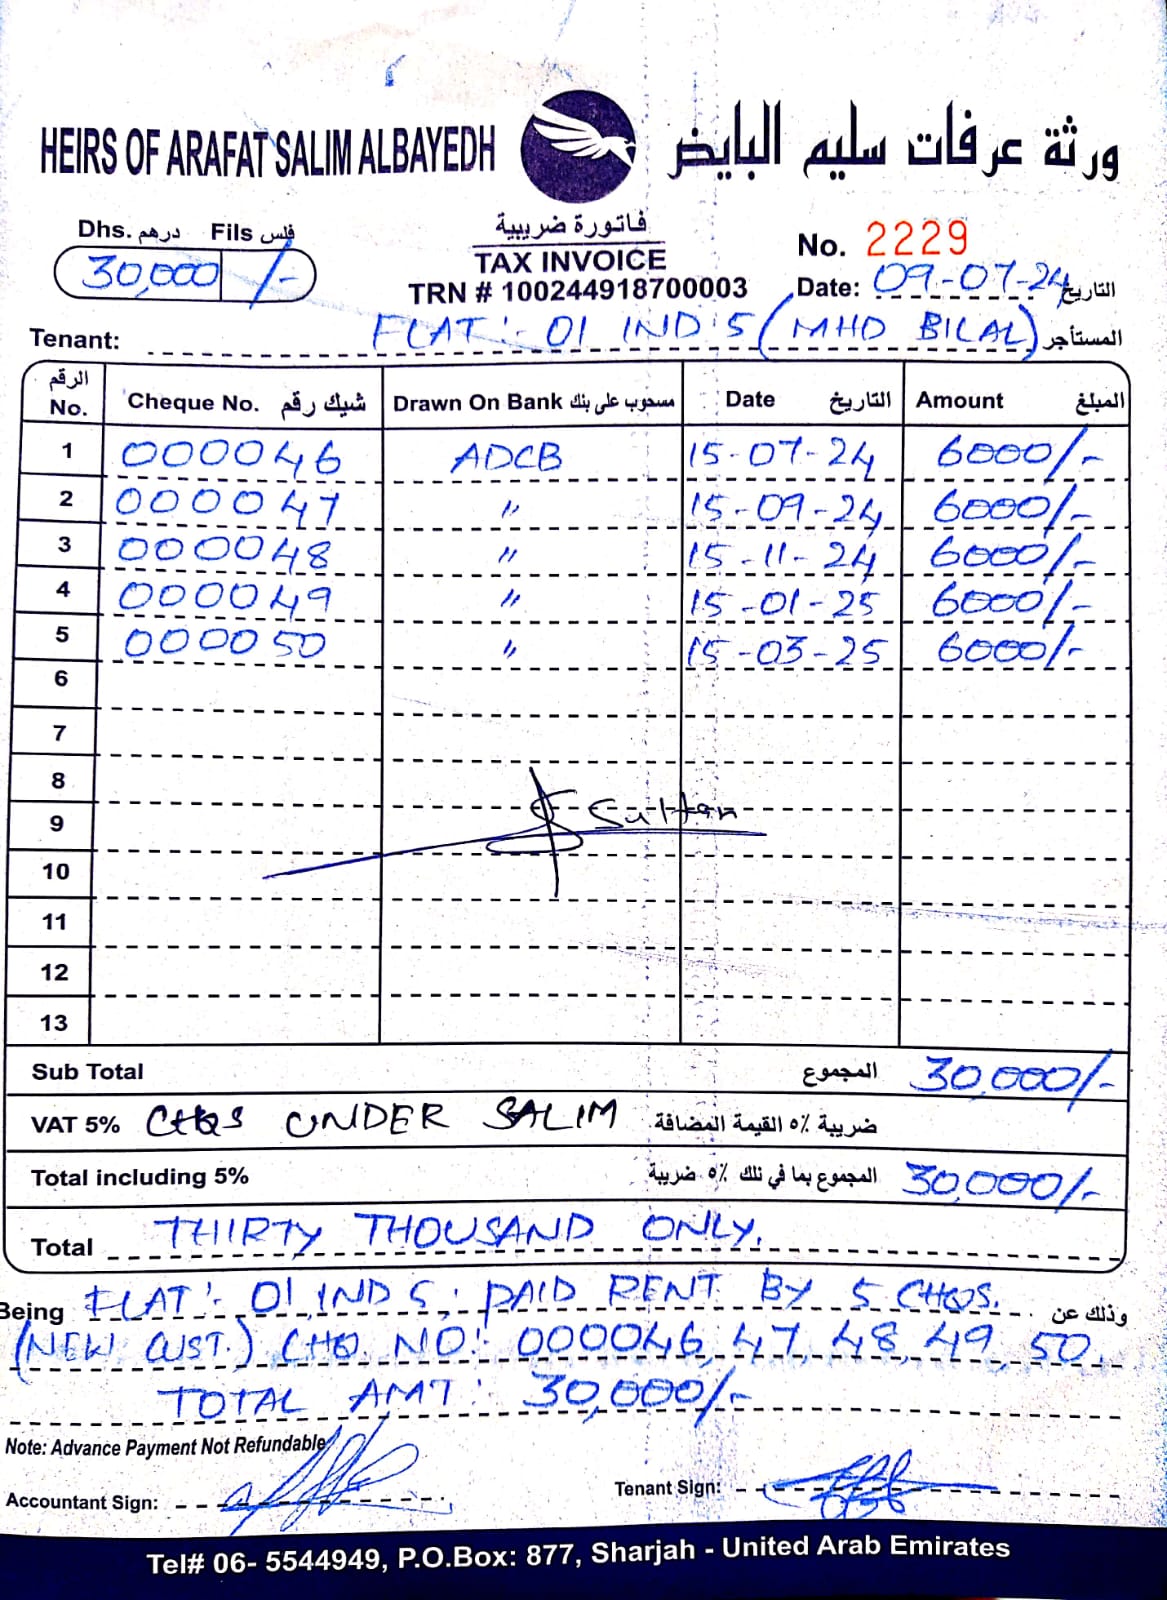 HEIRS OF ARAFAT SALIM ALBAYEDH ورثة عرفات سليم البايض
Dhs. درهم Fils فلس
30,000 /-
فاتورة ضريبية
TAX INVOICE
TRN # 100244918700003
No. 2229
Date: 09-07-24 التاريخ
Tenant: FLAT:- 01 IND 5 (MHD BILAL) المستأجر
الرقم No. Cheque No. شيك رقم Drawn On Bank مسحوب على بنك Date التاريخ Amount المبلغ
1 000046 ADCB 15-07-24 6000/-
2 000047 〃 15-09-24 6000/-
3 000048 〃 15-11-24 6000/-
4 000049 〃 15-01-25 6000/-
5 000050 〃 15-03-25 6000/-
6
7
8
9 Sultan
10
11
12
13
Sub Total المجموع 30,000/-
VAT 5% CHQS UNDER SALIM ضريبة ٥٪ القيمة المضافة
Total including 5% المجموع بما في ذلك ٥٪ ضريبة 30,000/-
Total THIRTY THOUSAND ONLY.
Being FLAT:- 01 IND 5, PAID RENT BY 5 CHQS. وذلك عن
(NEW CUST.) CHQ. NO: 000046, 47, 48, 49, 50.
TOTAL AMT: 30,000/-
Note: Advance Payment Not Refundable
Accountant Sign:
Tenant Sign:
Tel# 06- 5544949, P.O.Box: 877, Sharjah - United Arab Emirates